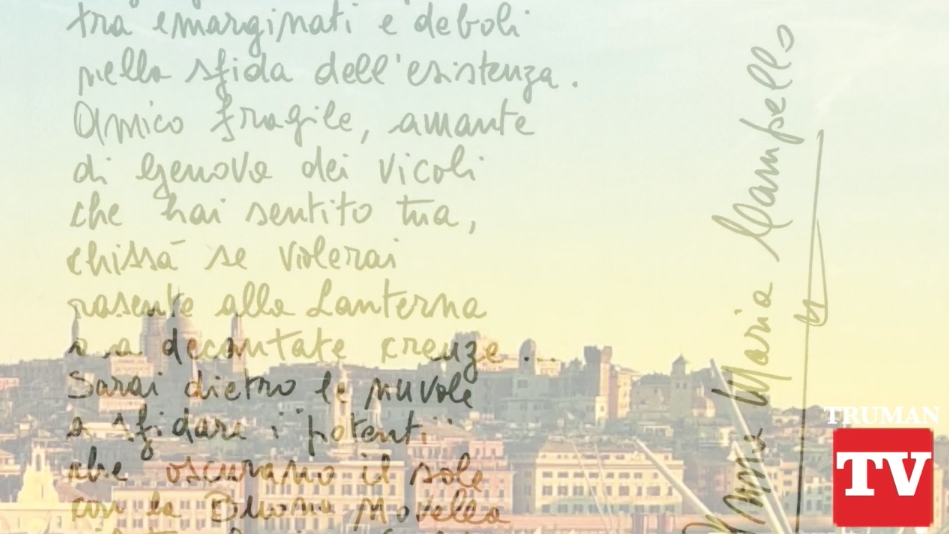 tra emarginati e deboli
nella sfida dell'esistenza.
Amico fragile, amante
di Genova dei vicoli
che hai sentito tua,
chissà se volerai
rasente alla Lanterna
o a decantate creuze.
Sarai dietro le nuvole
a sfidare i potenti
che oscurano il sole
con la Buona Novella
Anna Maria Campello
TRUMAN
TV